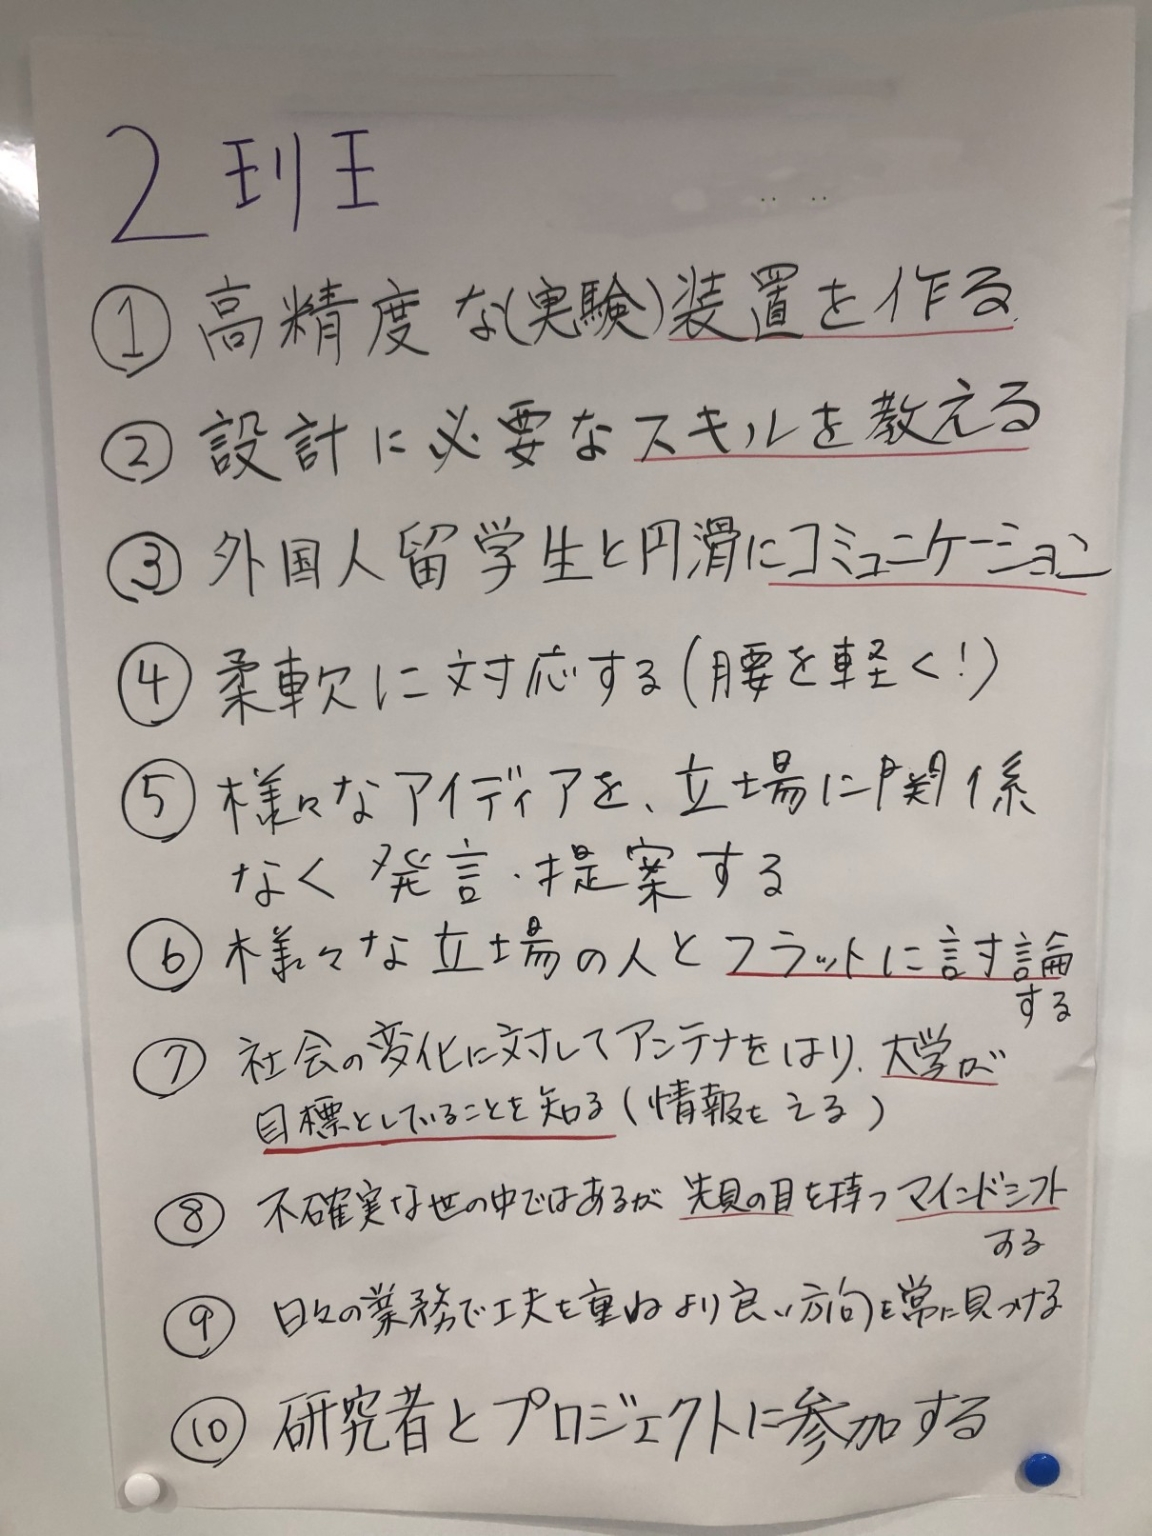 2班
① 高精度な(実験)装置を作る
② 設計に必要なスキルを教える
③ 外国人留学生と円滑にコミュニケーション
④ 柔軟に対応する(腰を軽く!)
⑤ 様々なアイディアを、立場に関係
なく発言・提案する
⑥ 様々な立場の人とフラットに討論
する
⑦ 社会の変化に対してアンテナをはり、大学が
目標としていることを知る(情報をえる)
⑧ 不確実な世の中ではあるが先見の目を持つマインドシフト
する
⑨ 日々の業務で工夫を重ねより良い方向を常に見つける
⑩ 研究者とプロジェクトに参加する